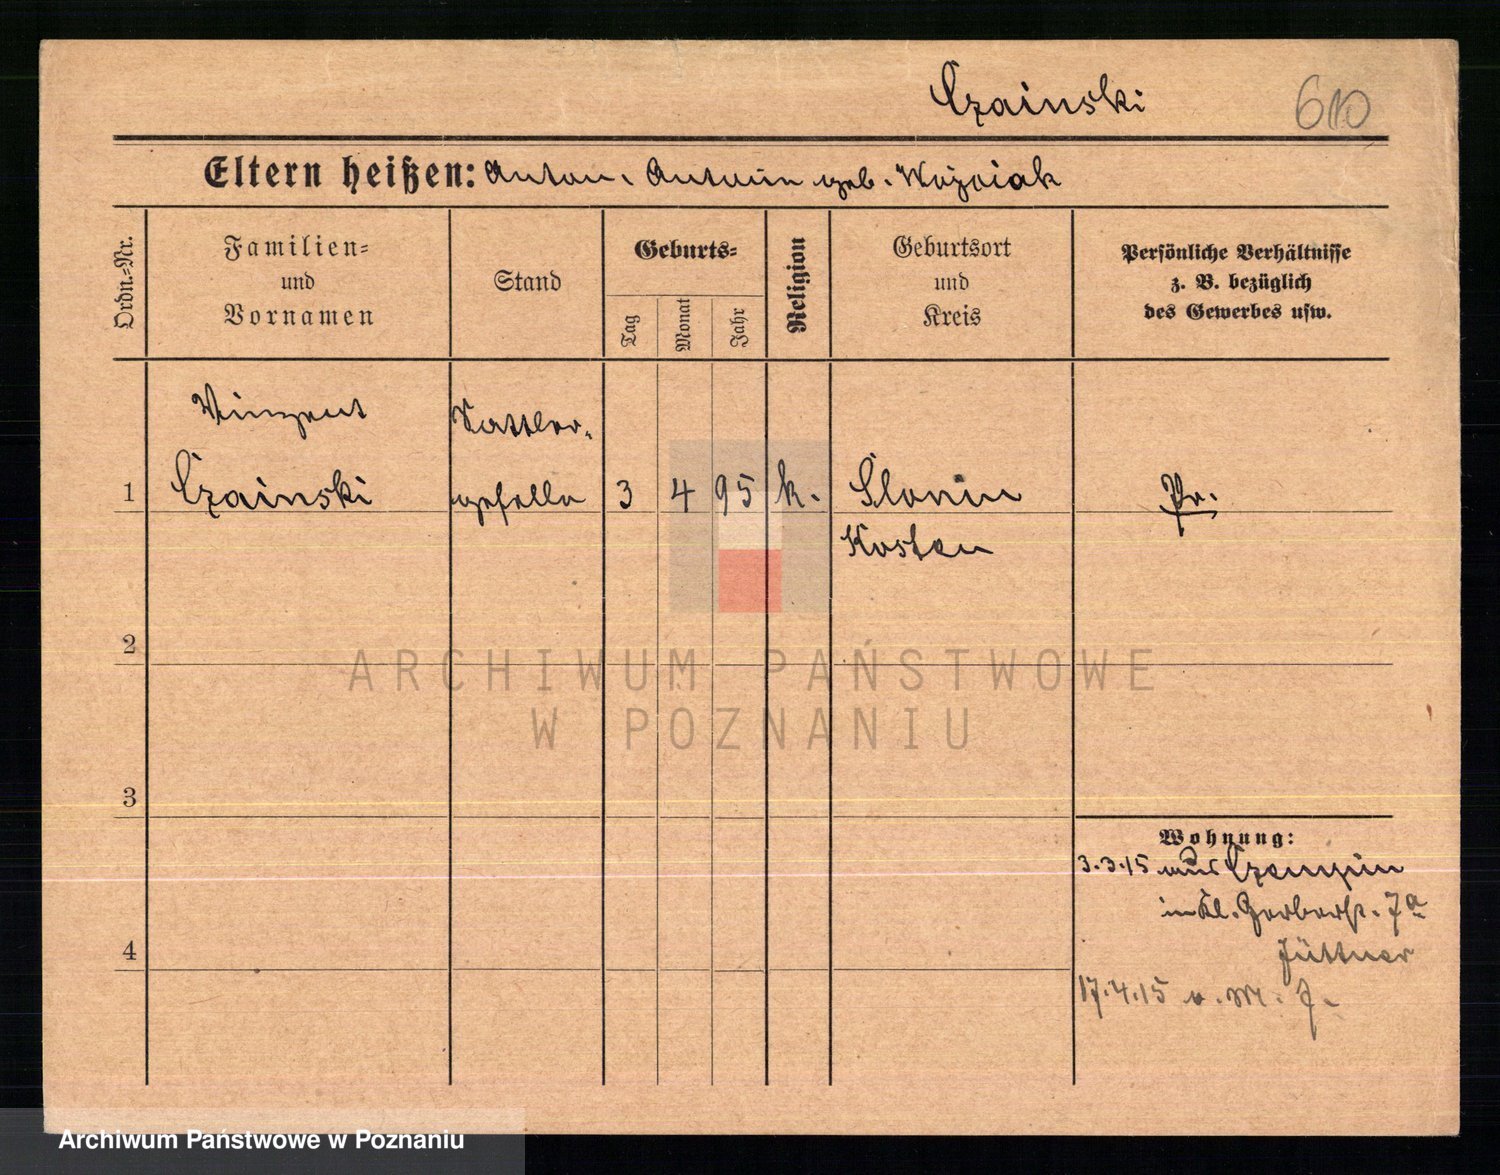 Czainski
610
Eltern heißen: Anton. Antonin geb. Wojciak
Ordn.=Nr.
Familien=
und
Vornamen
Stand
Geburts=
Tag
Monat
Jahr
Religion
Geburtsort
und
Kreis
Persönliche Verhältnisse
z. B. bezüglich
des Gewerbes usw.
Vinzent
Sattler-
1 Czainski geselle 3 4 95 k. Slonin Pr.
Kosten
2
ARCHIWUM PAŃSTWOWE
W POZNANIU
3
Wohnung:
3.3.15 aus Czempin
in Kl. Gerberstr. 7a
4
Jüttner
17.4.15 v. M. J.
Archiwum Państwowe w Poznaniu